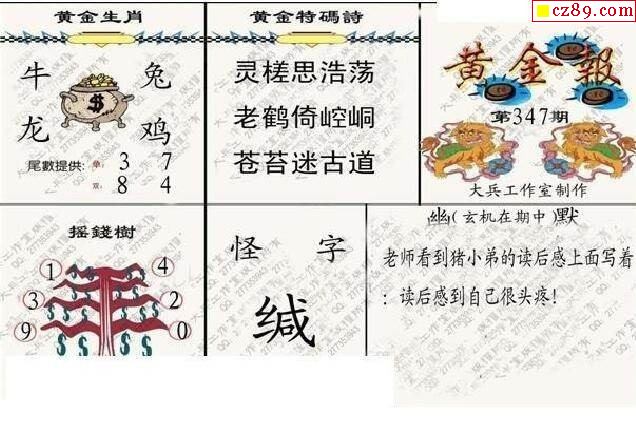 cz89.com
黄金生肖
牛 兔
龙 鸡
$
尾數提供: 单: 3 7
双: 8 4
黄金特碼詩
灵槎思浩荡
老鹤倚崆峒
苍苔迷古道
黄金報
第347期
大兵工作室制作
摇錢樹
1 4
3 2
9 0
怪 字
缄
幽(玄机在期中)默
老师看到猪小弟的读后感上面写着
：读后感到自己很头疼!